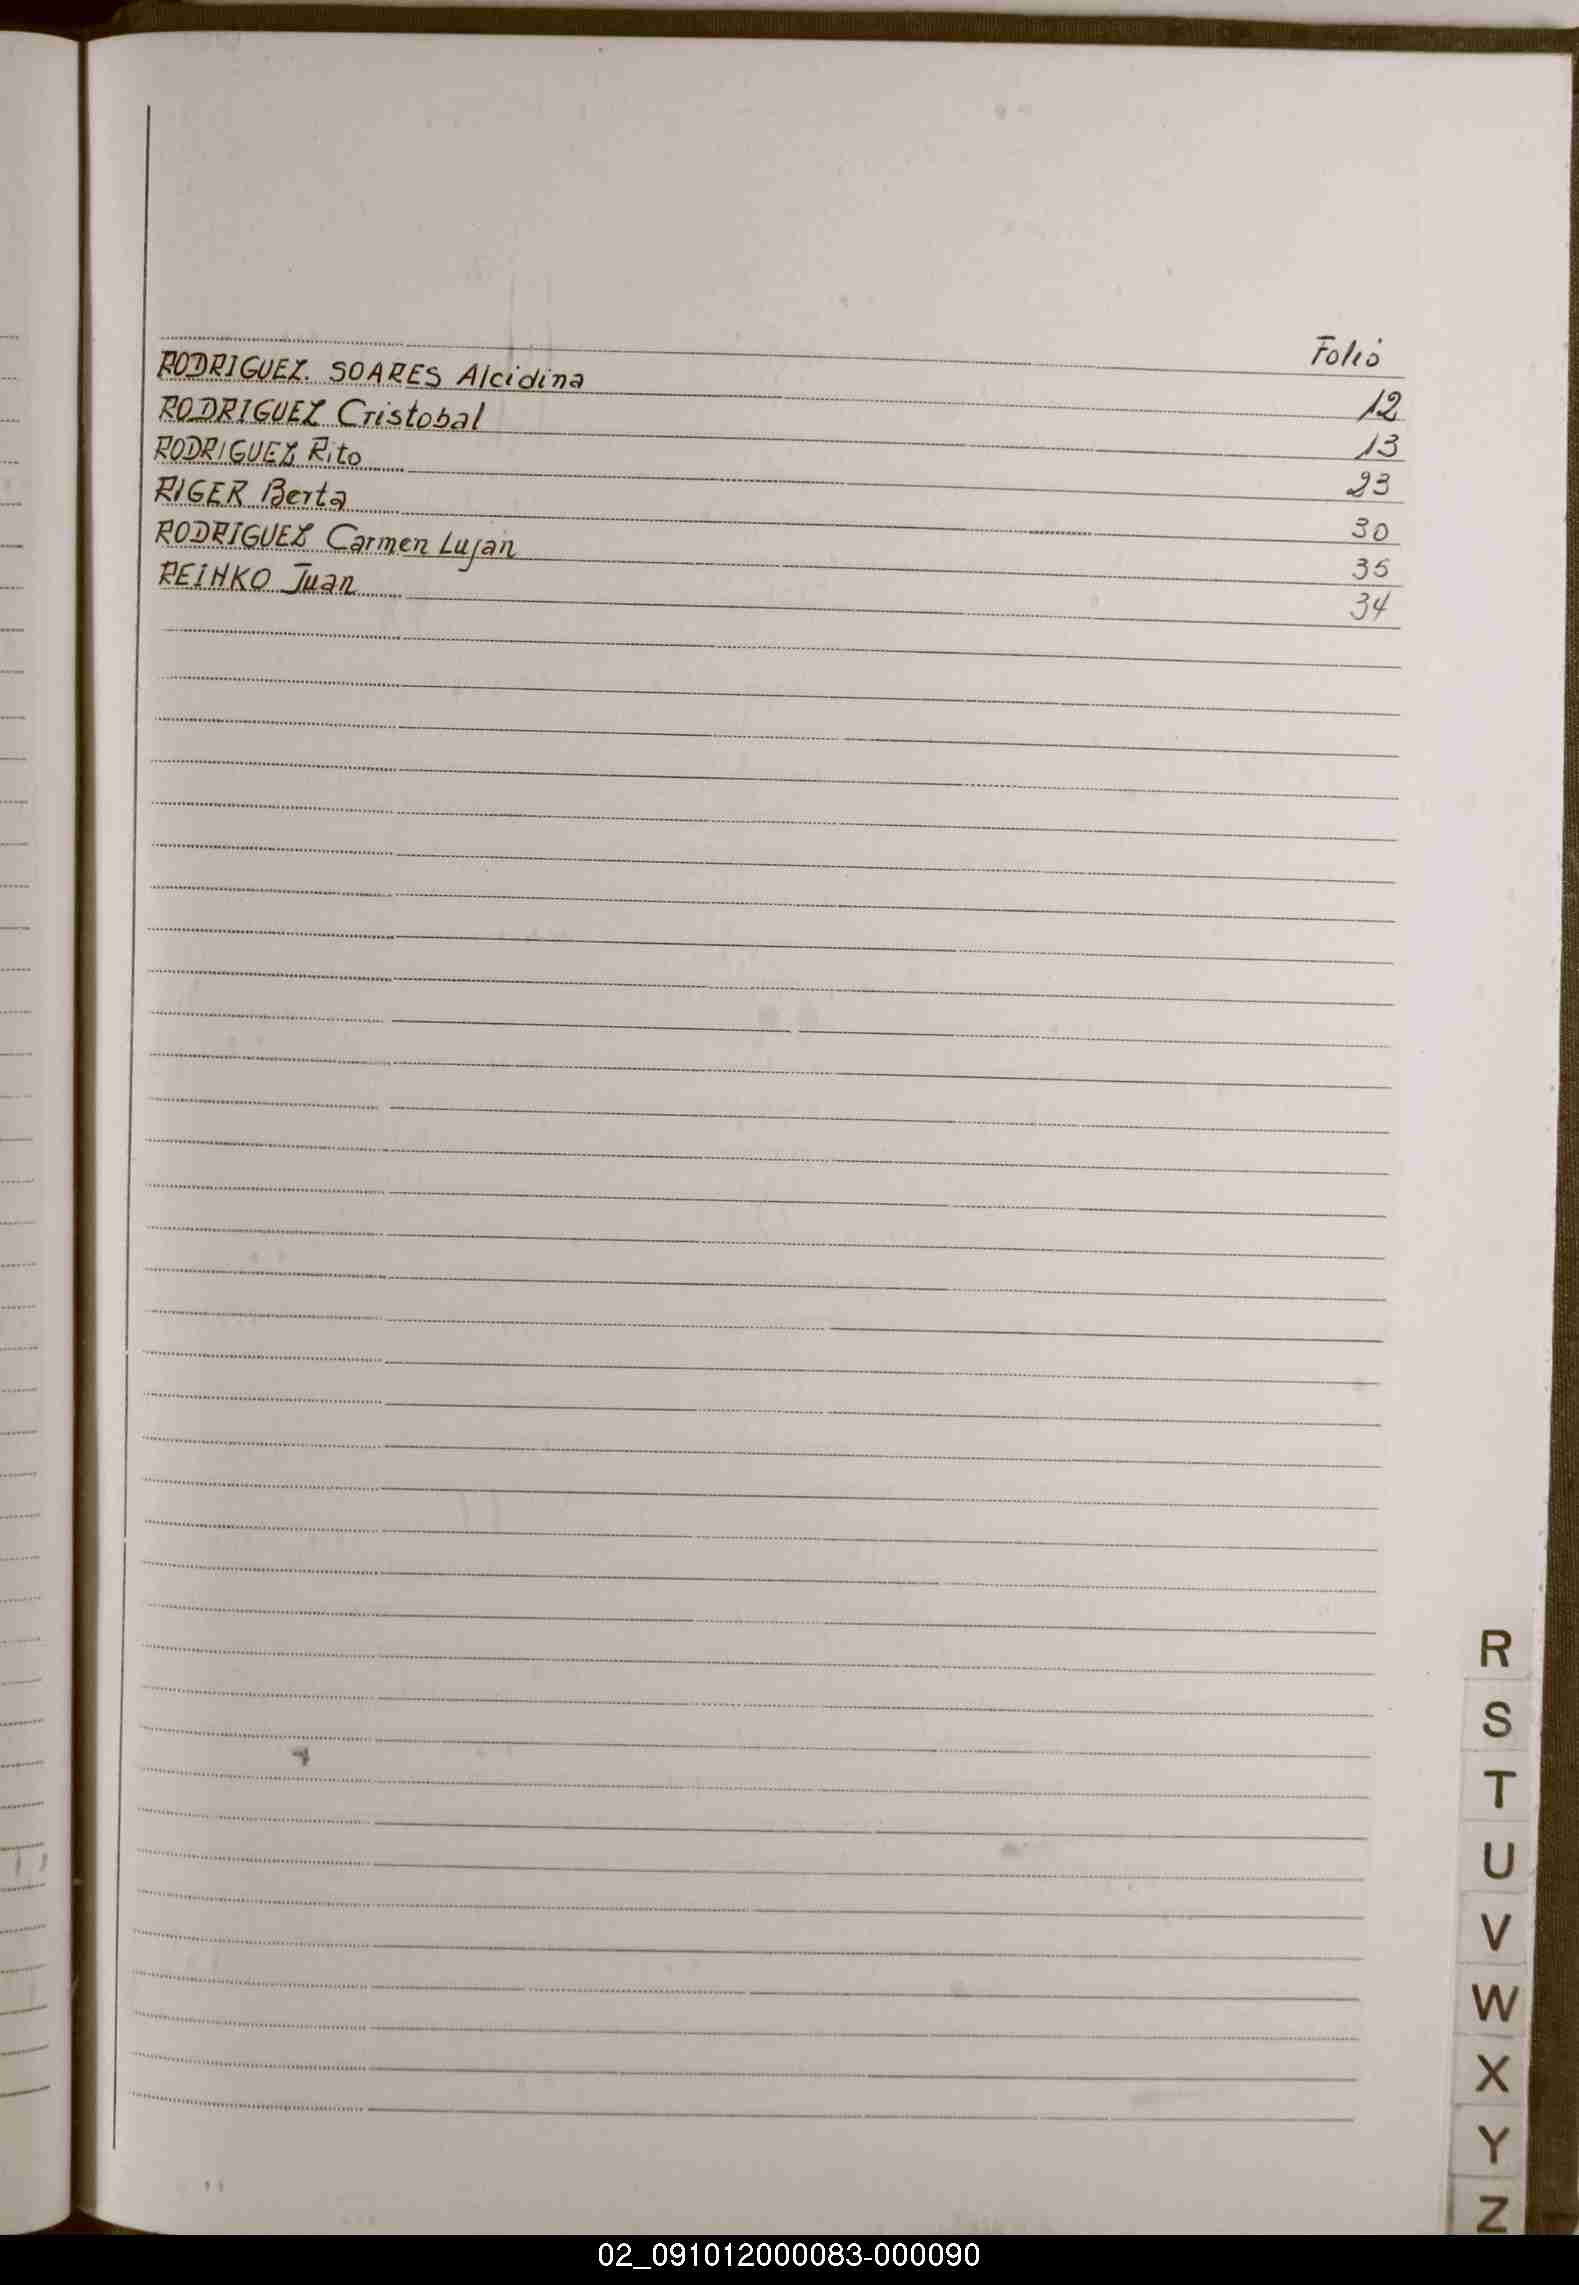 Folio
RODRIGUEZ. SOARES Alcidina 12
RODRIGUEZ Cristobal 13
RODRIGUEZ Rito 23
RIGER Berta 30
RODRIGUEZ Carmen Lujan 35
REIHKO Juan 34
R
S
T
U
V
W
X
Y
Z
02_091012000083-000090